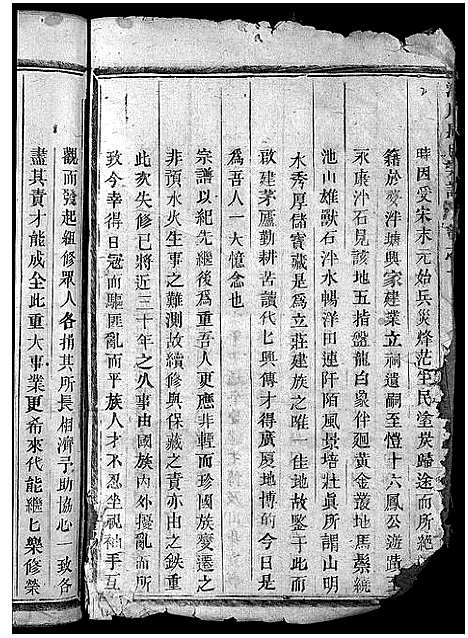 時因受宋末元始兵災烽茫生民塗炭歸途而所絕
籍於麥泮塘興家建業立祠遺嗣至愷十六鳳公遊蹟至
永康沖石見該地五指盤龍白象伴廻黃金叢地馬鬃統
池山雄獸石泮水暢洋田連阡陌風景培壯眞所謂山明
水秀厚儲寶藏是爲立莊建族之唯一佳地故鑒于此而
敢建茅廬勤耕苦讀代匕興傳才得廣廈地博的今日是
爲吾人一大憶念也
宗譜以紀先繼後爲重吾人更應非輕而珍國族變遷之
非預水火生事之難測故續修與保藏之責亦由之鉄重
此亥失修已將近三十年之久事由國族內外擾亂而所
致今幸得日冠而驅匪亂而平族人才不忍坐視袖手互
觀而發起組修眾人各捐其所長相濟予助協心一致各
盡其責才能成全此重大事業更希來代能繼匕樂修榮